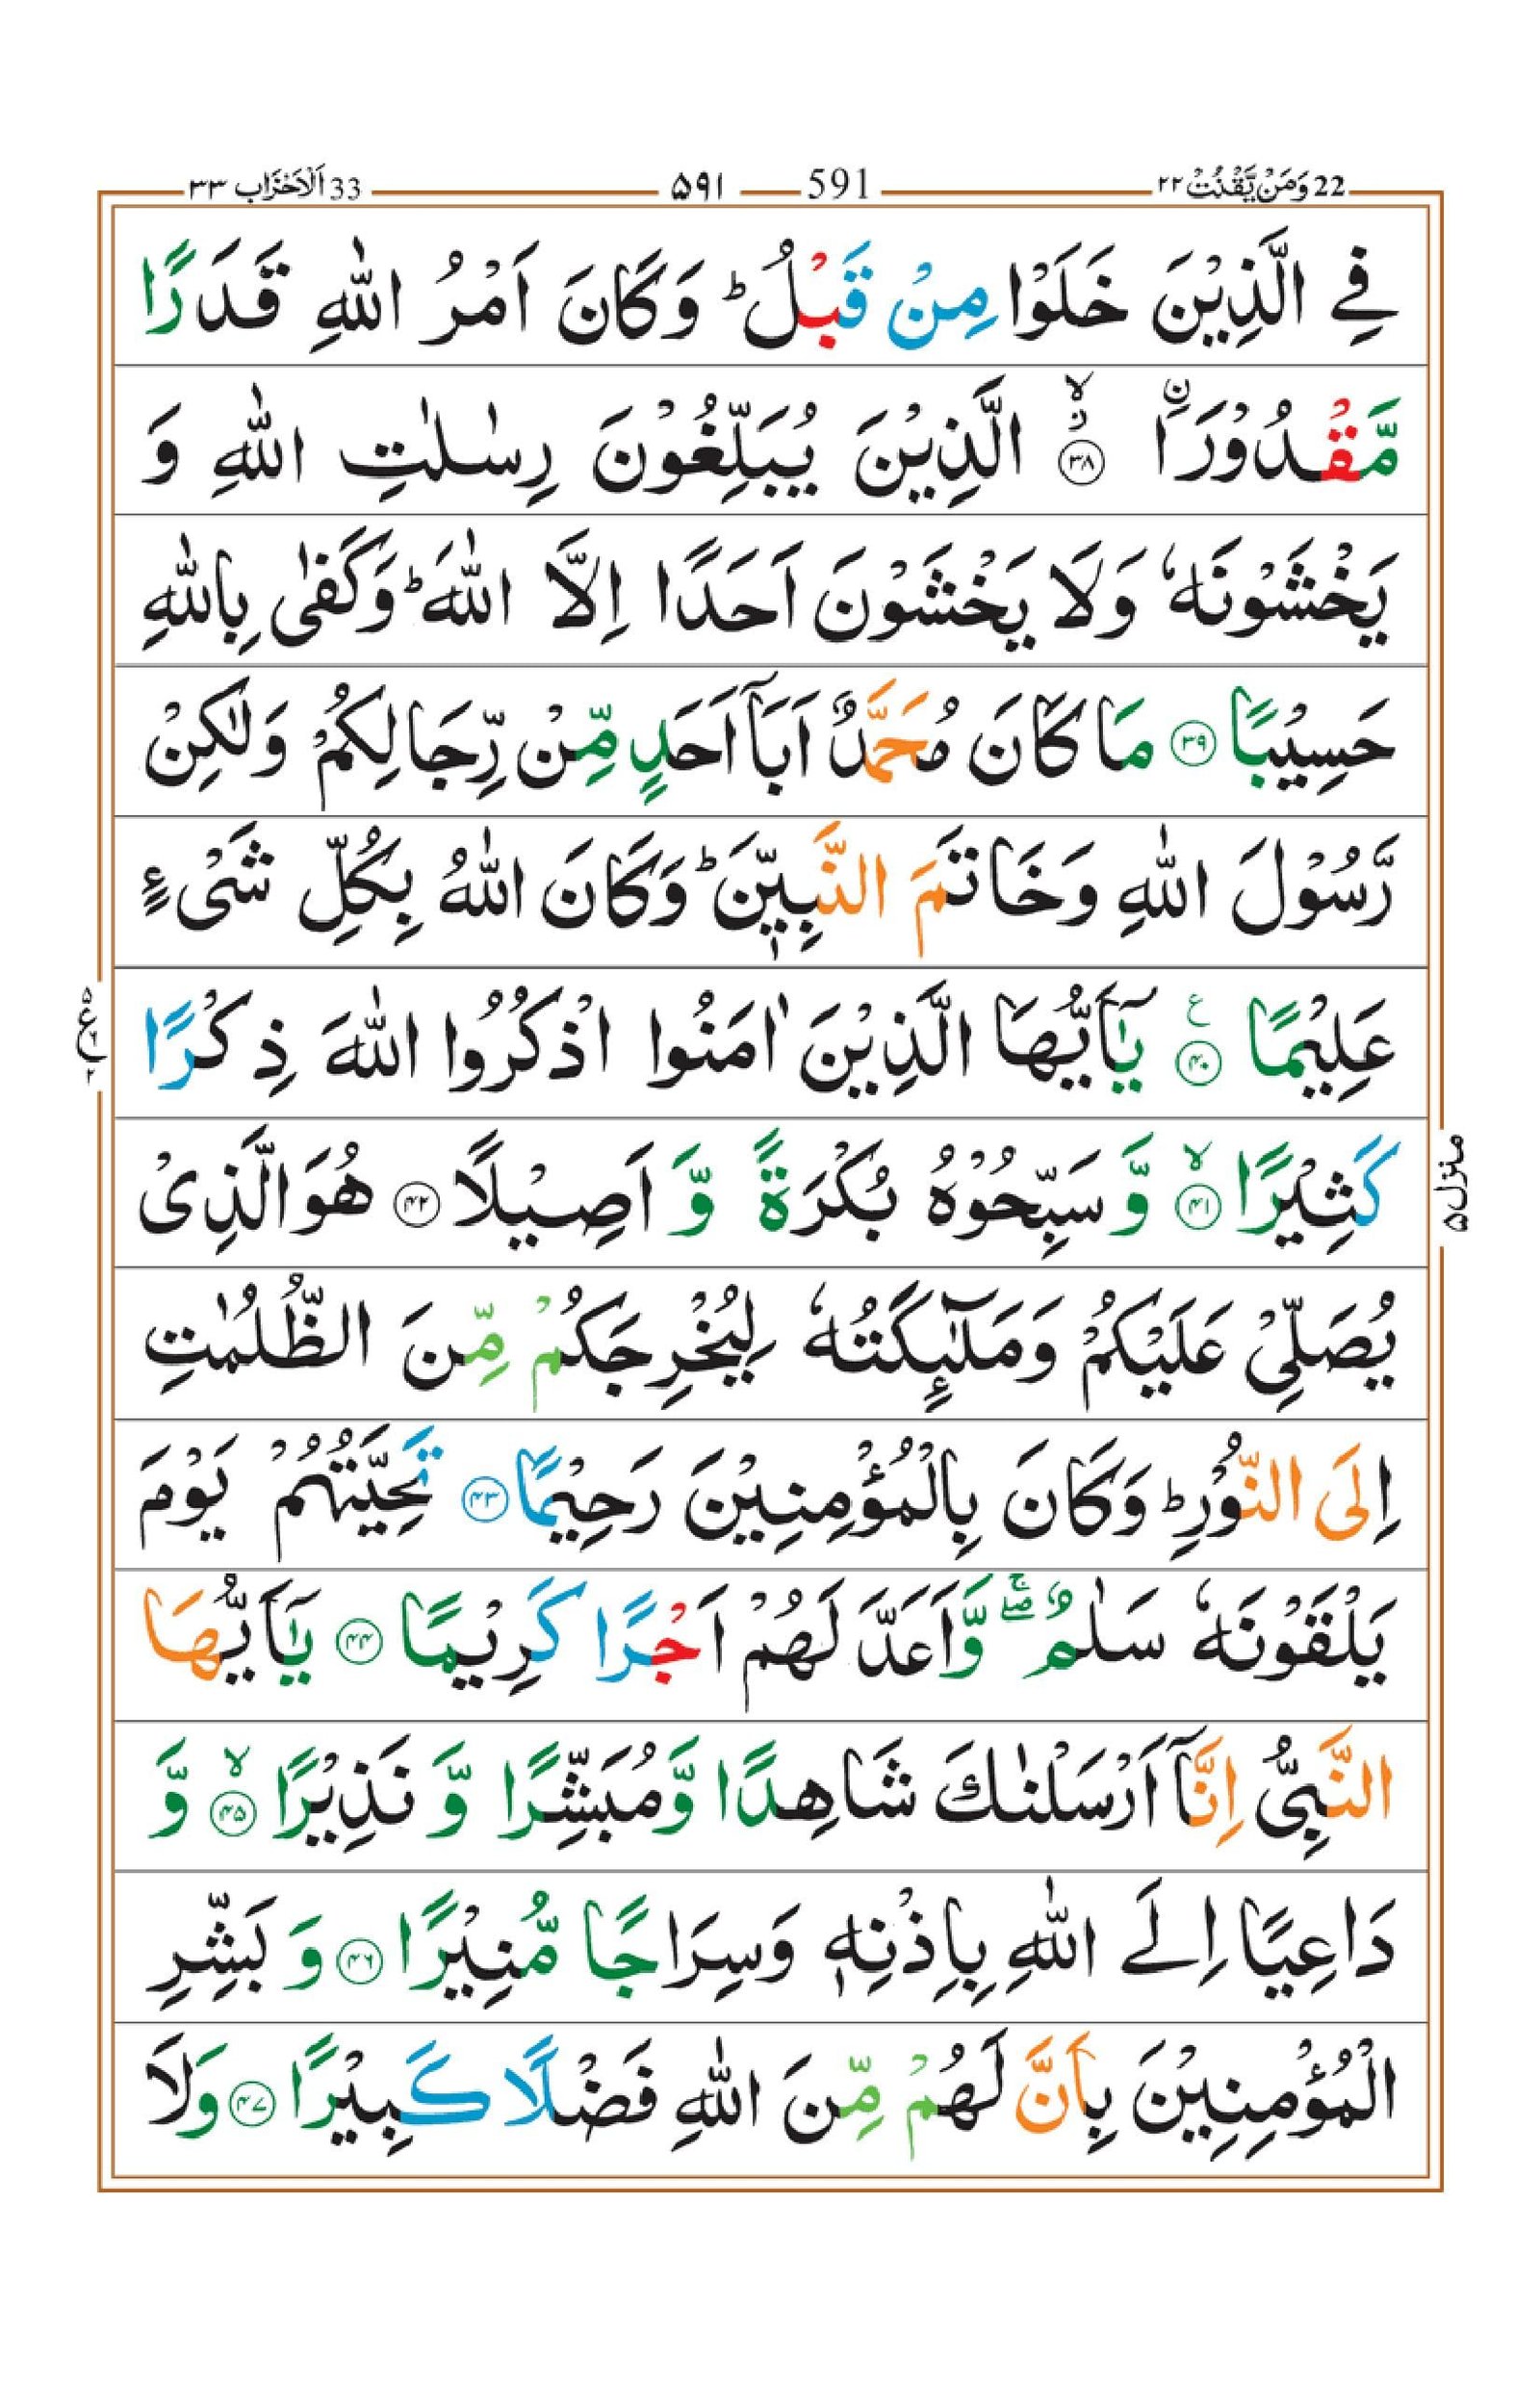 22 وَمَنْ يَّقْنُتْ ۲۲ 591 ۵۹۱ 33 اَلْاَحْزَاب ۳۳
فِی الَّذِیْنَ خَلَوْا مِنْ قَبْلُ ؕ وَكَانَ اَمْرُ اللّٰهِ قَدَرًا
مَّقْدُوْرَا ۟ۙ﴿۳۸﴾ الَّذِیْنَ یُبَلِّغُوْنَ رِسٰلٰتِ اللّٰهِ وَ
یَخْشَوْنَهٗ وَلَا یَخْشَوْنَ اَحَدًا اِلَّا اللّٰهَ ؕ وَكَفٰی بِاللّٰهِ
حَسِیْبًا ﴿۳۹﴾ مَا كَانَ مُحَمَّدٌ اَبَاۤ اَحَدٍ مِّنْ رِّجَالِكُمْ وَلٰكِنْ
رَّسُوْلَ اللّٰهِ وَخَاتَمَ النَّبِیّٖنَ ؕ وَكَانَ اللّٰهُ بِكُلِّ شَیْءٍ
عَلِیْمًا ﴿۴۰﴾ ع یٰۤاَیُّهَا الَّذِیْنَ اٰمَنُوا اذْكُرُوا اللّٰهَ ذِكْرًا
۵ ع ۲
كَثِیْرًا ۙ﴿۴۱﴾ وَّ سَبِّحُوْهُ بُكْرَةً وَّ اَصِیْلًا ﴿۴۲﴾ هُوَ الَّذِیْ
منزل ۵
یُصَلِّیْ عَلَیْكُمْ وَمَلٰٓىِٕكَتُهٗ لِیُخْرِجَكُمْ مِّنَ الظُّلُمٰتِ
اِلَی النُّوْرِ ؕ وَكَانَ بِالْمُؤْمِنِیْنَ رَحِیْمًا ﴿۴۳﴾ تَحِیَّتُهُمْ یَوْمَ
یَلْقَوْنَهٗ سَلٰمٌ ۖۚ وَّاَعَدَّ لَهُمْ اَجْرًا كَرِیْمًا ﴿۴۴﴾ یٰۤاَیُّهَا
النَّبِیُّ اِنَّاۤ اَرْسَلْنٰكَ شَاهِدًا وَّمُبَشِّرًا وَّ نَذِیْرًا ۙ﴿۴۵﴾ وَّ
دَاعِیًا اِلَی اللّٰهِ بِاِذْنِهٖ وَسِرَاجًا مُّنِیْرًا ﴿۴۶﴾ وَ بَشِّرِ
الْمُؤْمِنِیْنَ بِاَنَّ لَهُمْ مِّنَ اللّٰهِ فَضْلًا كَبِیْرًا ﴿۴۷﴾ وَلَا